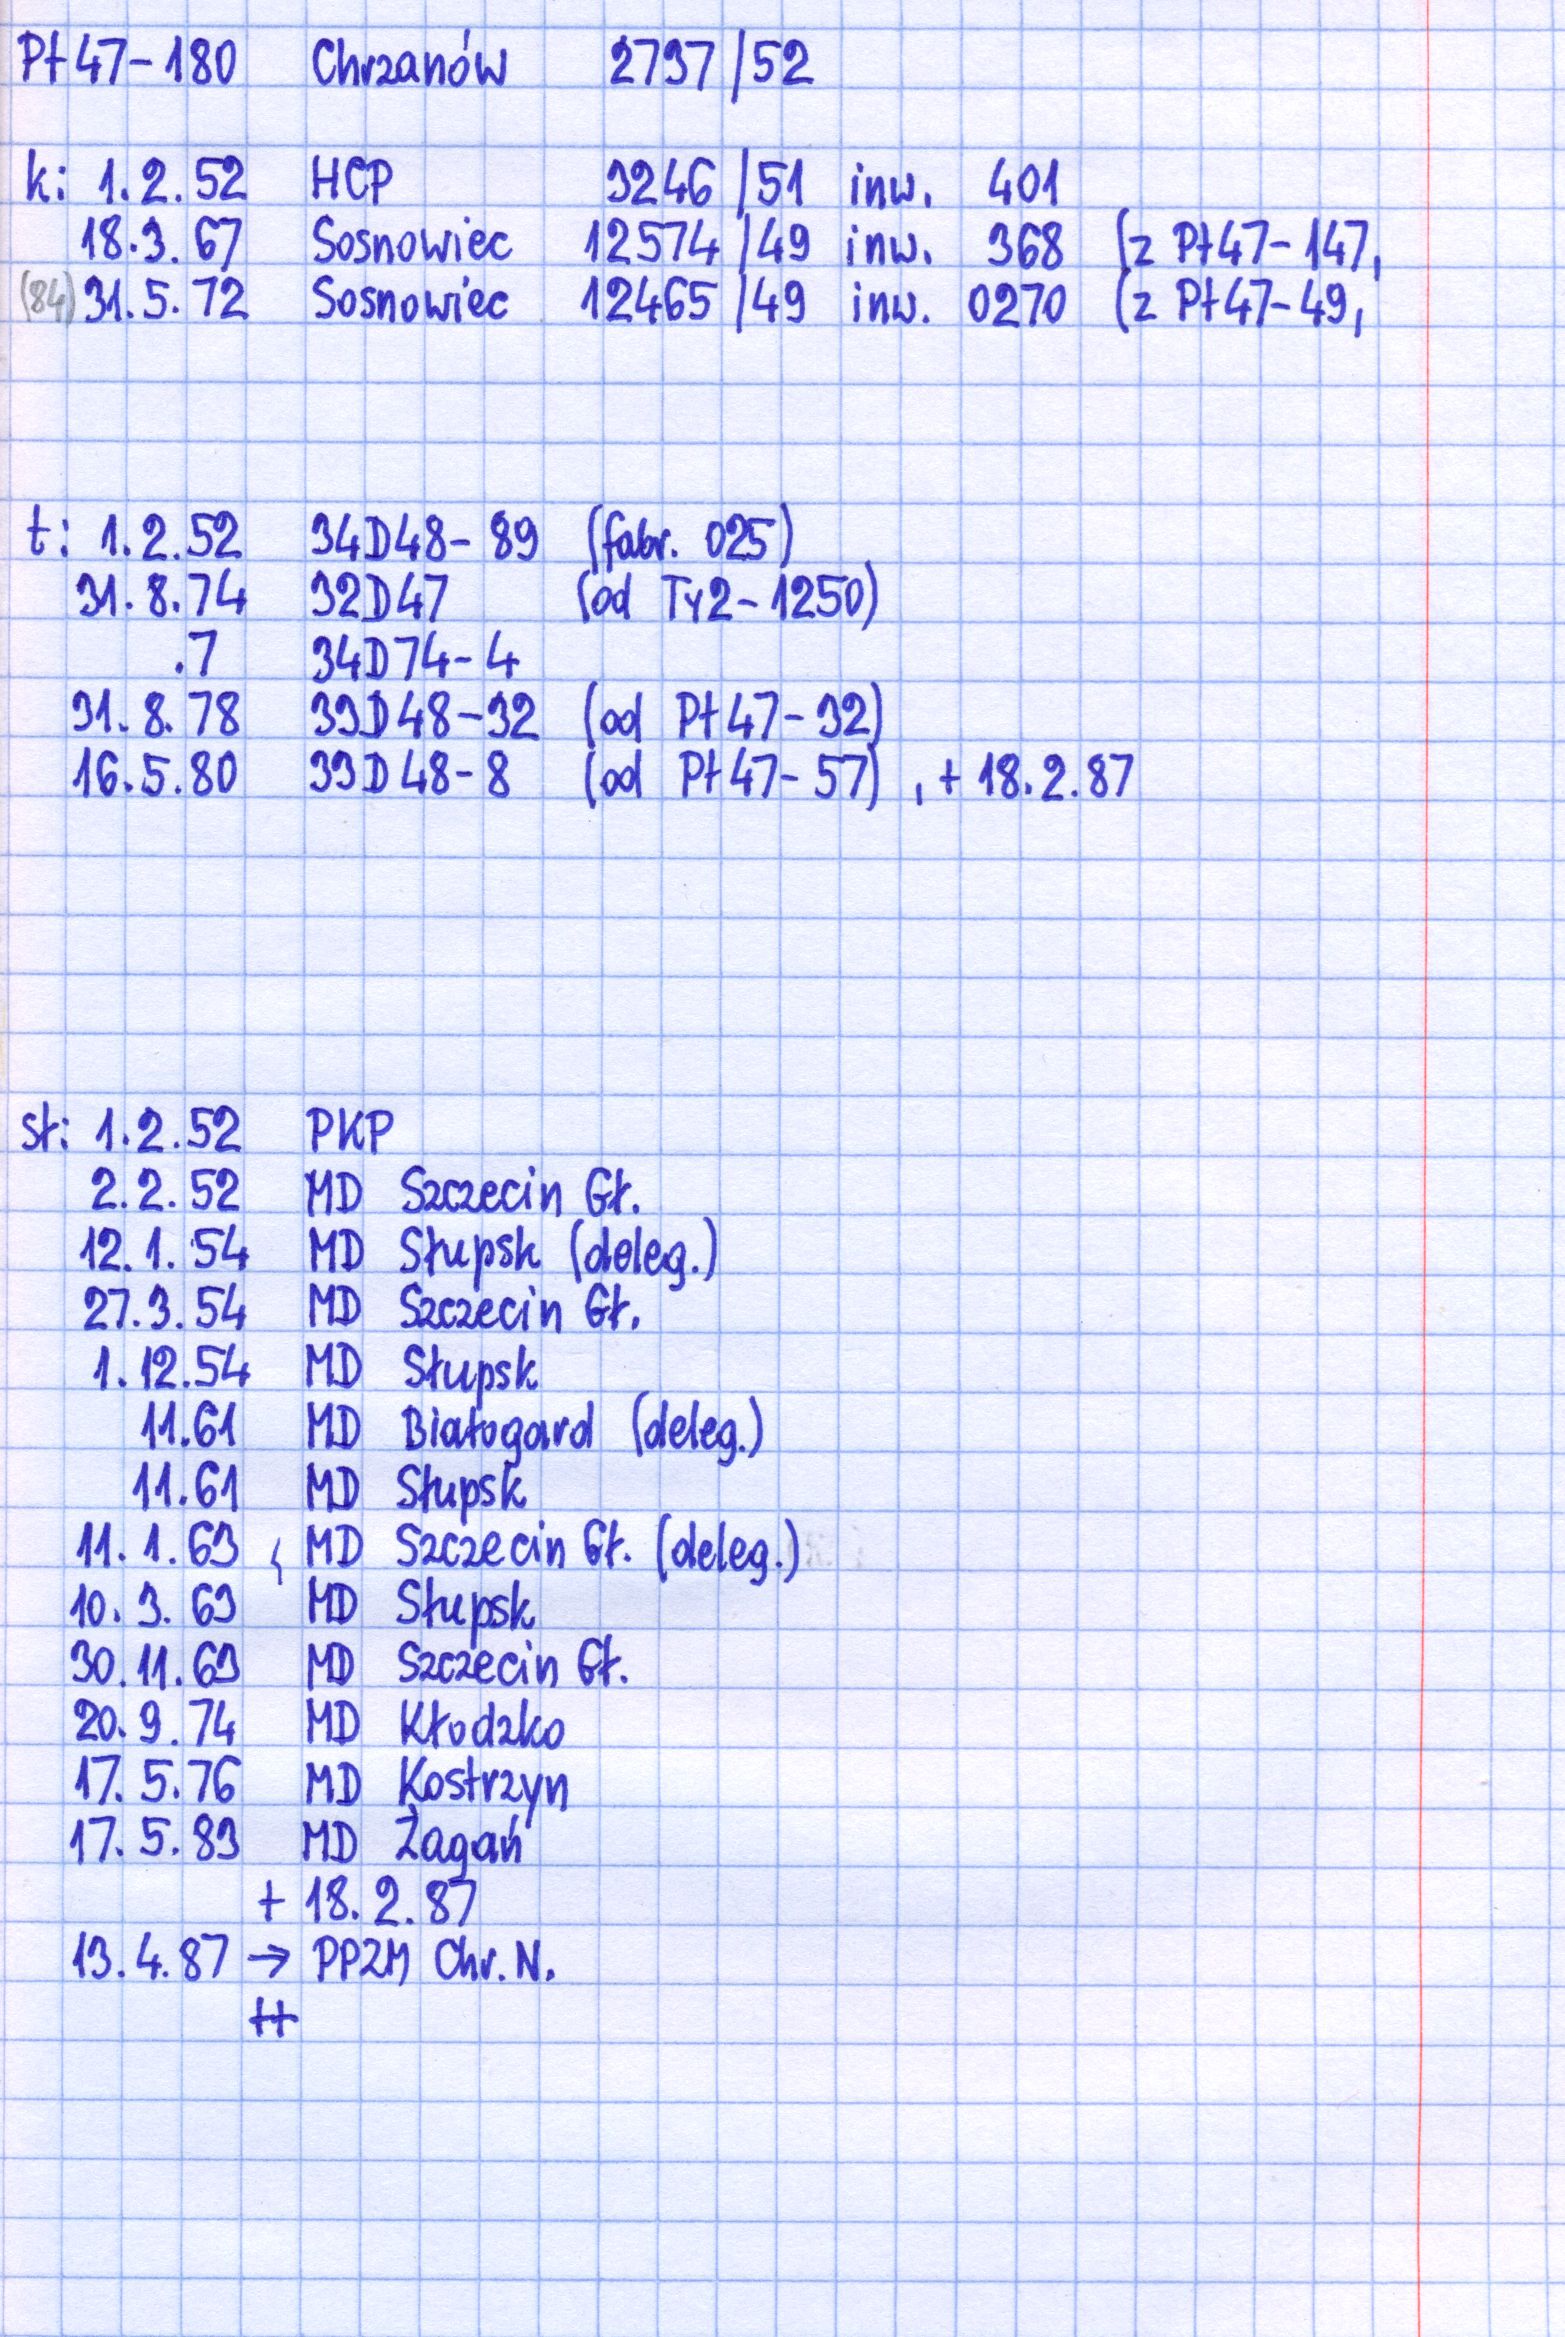 Pt47-180 Chrzanów 2797/52
k: 1.2.52 HCP 3246/51 inw. 401
18.3.67 Sosnowiec 12574/49 inw. 368 (z Pt47-147,
(84) 31.5.72 Sosnowiec 12465/49 inw. 0270 (z Pt47-49,
t: 1.2.52 34D48-89 (fabr. 025)
31.8.74 32D47 (od Ty2-1250)
.7 34D74-4
31.8.78 33D48-32 (od Pt47-32)
16.5.80 33D48-8 (od Pt47-57), + 18.2.87
st: 1.2.52 PKP
2.2.52 MD Szczecin Gł.
12.1.54 MD Słupsk (deleg.)
27.3.54 MD Szczecin Gł.
1.12.54 MD Słupsk
11.61 MD Białogard (deleg.)
11.61 MD Słupsk
11.1.63 MD Szczecin Gł. (deleg.)
10.3.63 MD Słupsk
30.11.63 MD Szczecin Gł.
20.9.74 MD Kłodzko
17.5.76 MD Kostrzyn
17.5.83 MD Żagań
+ 18.2.87
13.4.87 → PPZM Chr. N.
++